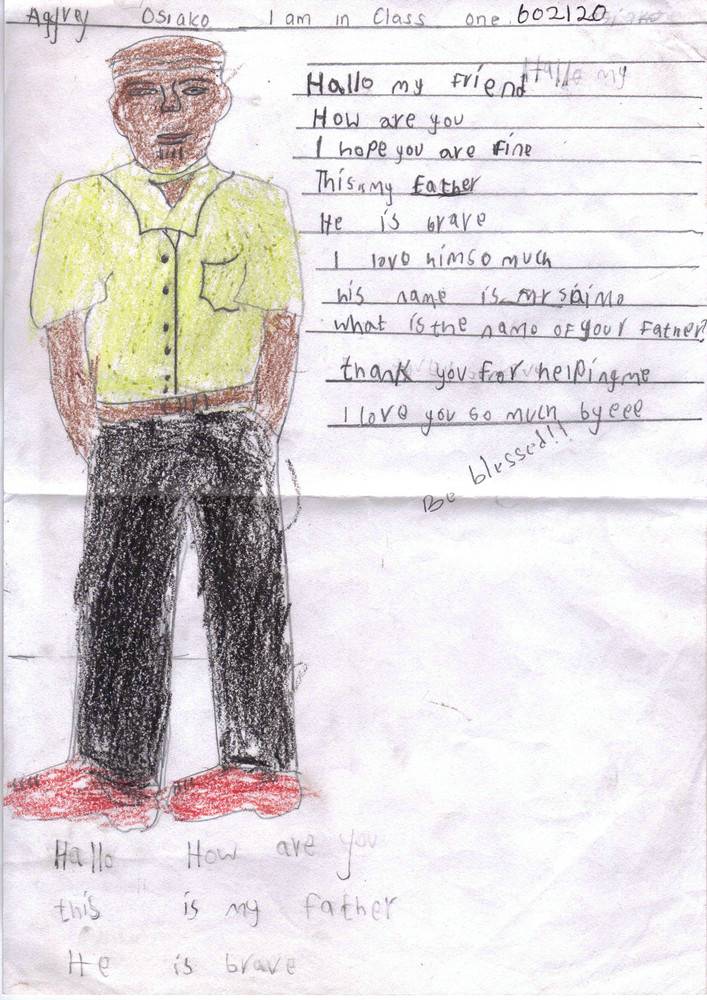 Aggrey Osiako I am in Class one 602120
Hallo my friend
How are you
I hope you are fine
This is my Father
He is brave
I love him so much
his name is Mr saimo
what is the name of your Father?
thank you for helping me
I love you so much byeee
Be blessed!!
Hallo How are you
this is my father
He is brave